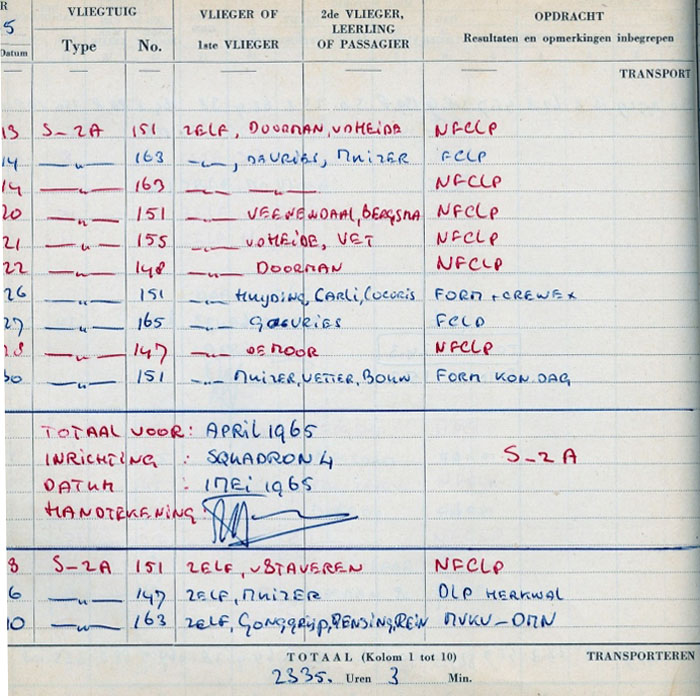 R VLIEGTUIG VLIEGER OF 2de VLIEGER, OPDRACHT
5 LEERLING
Datum Type No. 1ste VLIEGER OF PASSAGIER Resultaten en opmerkingen inbegrepen
TRANSPORT
13 S-2A 151 ZELF, DOORMAN, VDHEIDE NFCLP
14 —„— 163 —„—, DEVRIES, MUIZER FCLP
14 —„— 163 —„— —„— NFCLP
20 —„— 151 —„— VEENENDAAL, BERGSMA NFCLP
21 —„— 155 —„— VDHEIDE, VET NFCLP
22 —„— 148 —„— DOORMAN NFCLP
26 —„— 151 —„— HUYDING, CARLI, COCORIS FORM + CREWEX
27 —„— 165 —„— FCLP
28 —„— 147 —„— DEMOOR NFCLP
30 —„— 151 —„— MUIZER, VETTER, BOUW FORM KON.DAG
TOTAAL VOOR: APRIL 1965
INRICHTING : SQUADRON 4 S-2A
DATUM : 1 MEI 1965
HANDTEKENING:
3 S-2A 151 ZELF, VSTAVEREN NFCLP
6 —„— 147 ZELF, MUIZER DLP HERKWAL
10 —„— 163 ZELF, GONGGRIJP, RENSING, REIN MVKV-OMN
TOTAAL (Kolom 1 tot 10) TRANSPORTEREN
2335. Uren 3 Min.